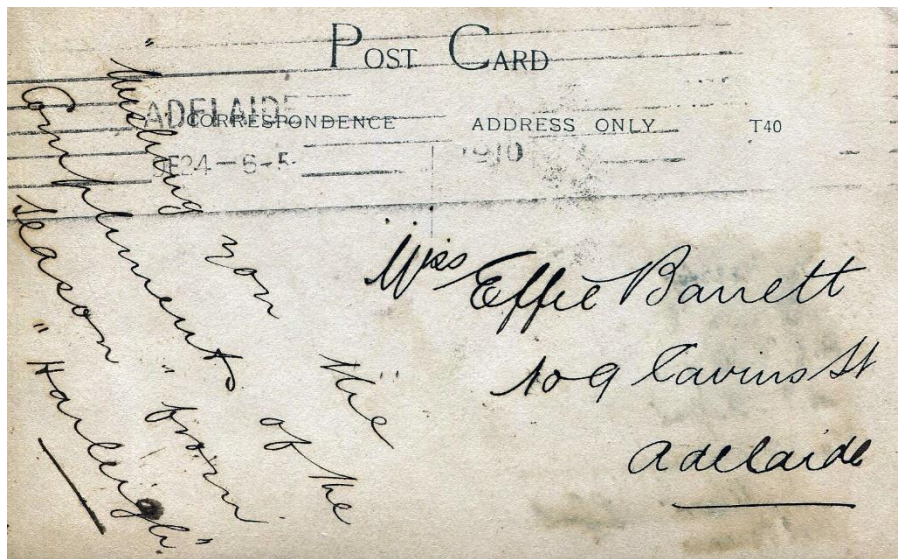 POST CARD
ADELAIDE
CORRESPONDENCE
ADDRESS ONLY
T40
DE24-6-5-
1910
"Wishing you the
Compliments of the
Season" from
"Harleigh"
Miss Effie Barrett
109 Cavins St
Adelaide